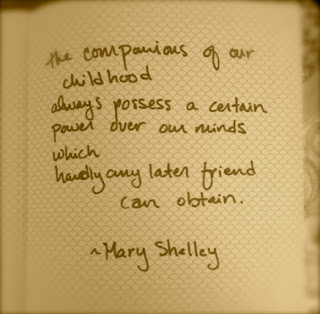 the companions of our
childhood
always possess a certain
power over our minds
which
hardly any later friend
can obtain.
~Mary Shelley